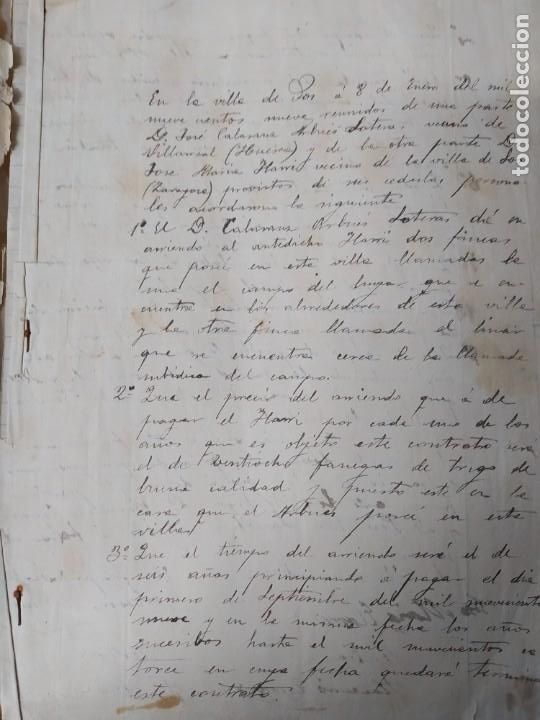 En la villa de Sos á 8 de Enero del mil
nueve cientos nueve reunidos de una parte
D. José Calasanz Arbués Lateras, vecino de
Villarreal (Huesca) y de la otra parte D.
José Maria Harri vecino de la villa de So
(Zaragoza) provistos de sus cedulas persona
les acordaron lo siguiente
1º El D. Calasanz Arbués Lateras dá en
arriendo al antedicho Harri dos fincas
que poseé en esta villa llamadas la
una el campo del que se en
cuentra en los alrededores de esta villa
y la otra finca llamada el linar
que se encuentra cerca de la llamada
del campo.
2º Que el precio del arriendo que á de
pagar el Harri por cada uno de los
años que es objeto este contrato será
el de Ventiocho fanegas de trigo de
buena calidad y puesto este en la
casa que el Arbués poseé en esta
villa
3º Que el tiempo del arriendo será el de
seis años principiando á pagar el dia
primero de Septiembre del mil nuevecientos
nueve y en la misma fecha los años
sucesibos hasta el mil nuevecientos ca
torce en cuya fecha quedará termina
este contrato.
todocoleccion